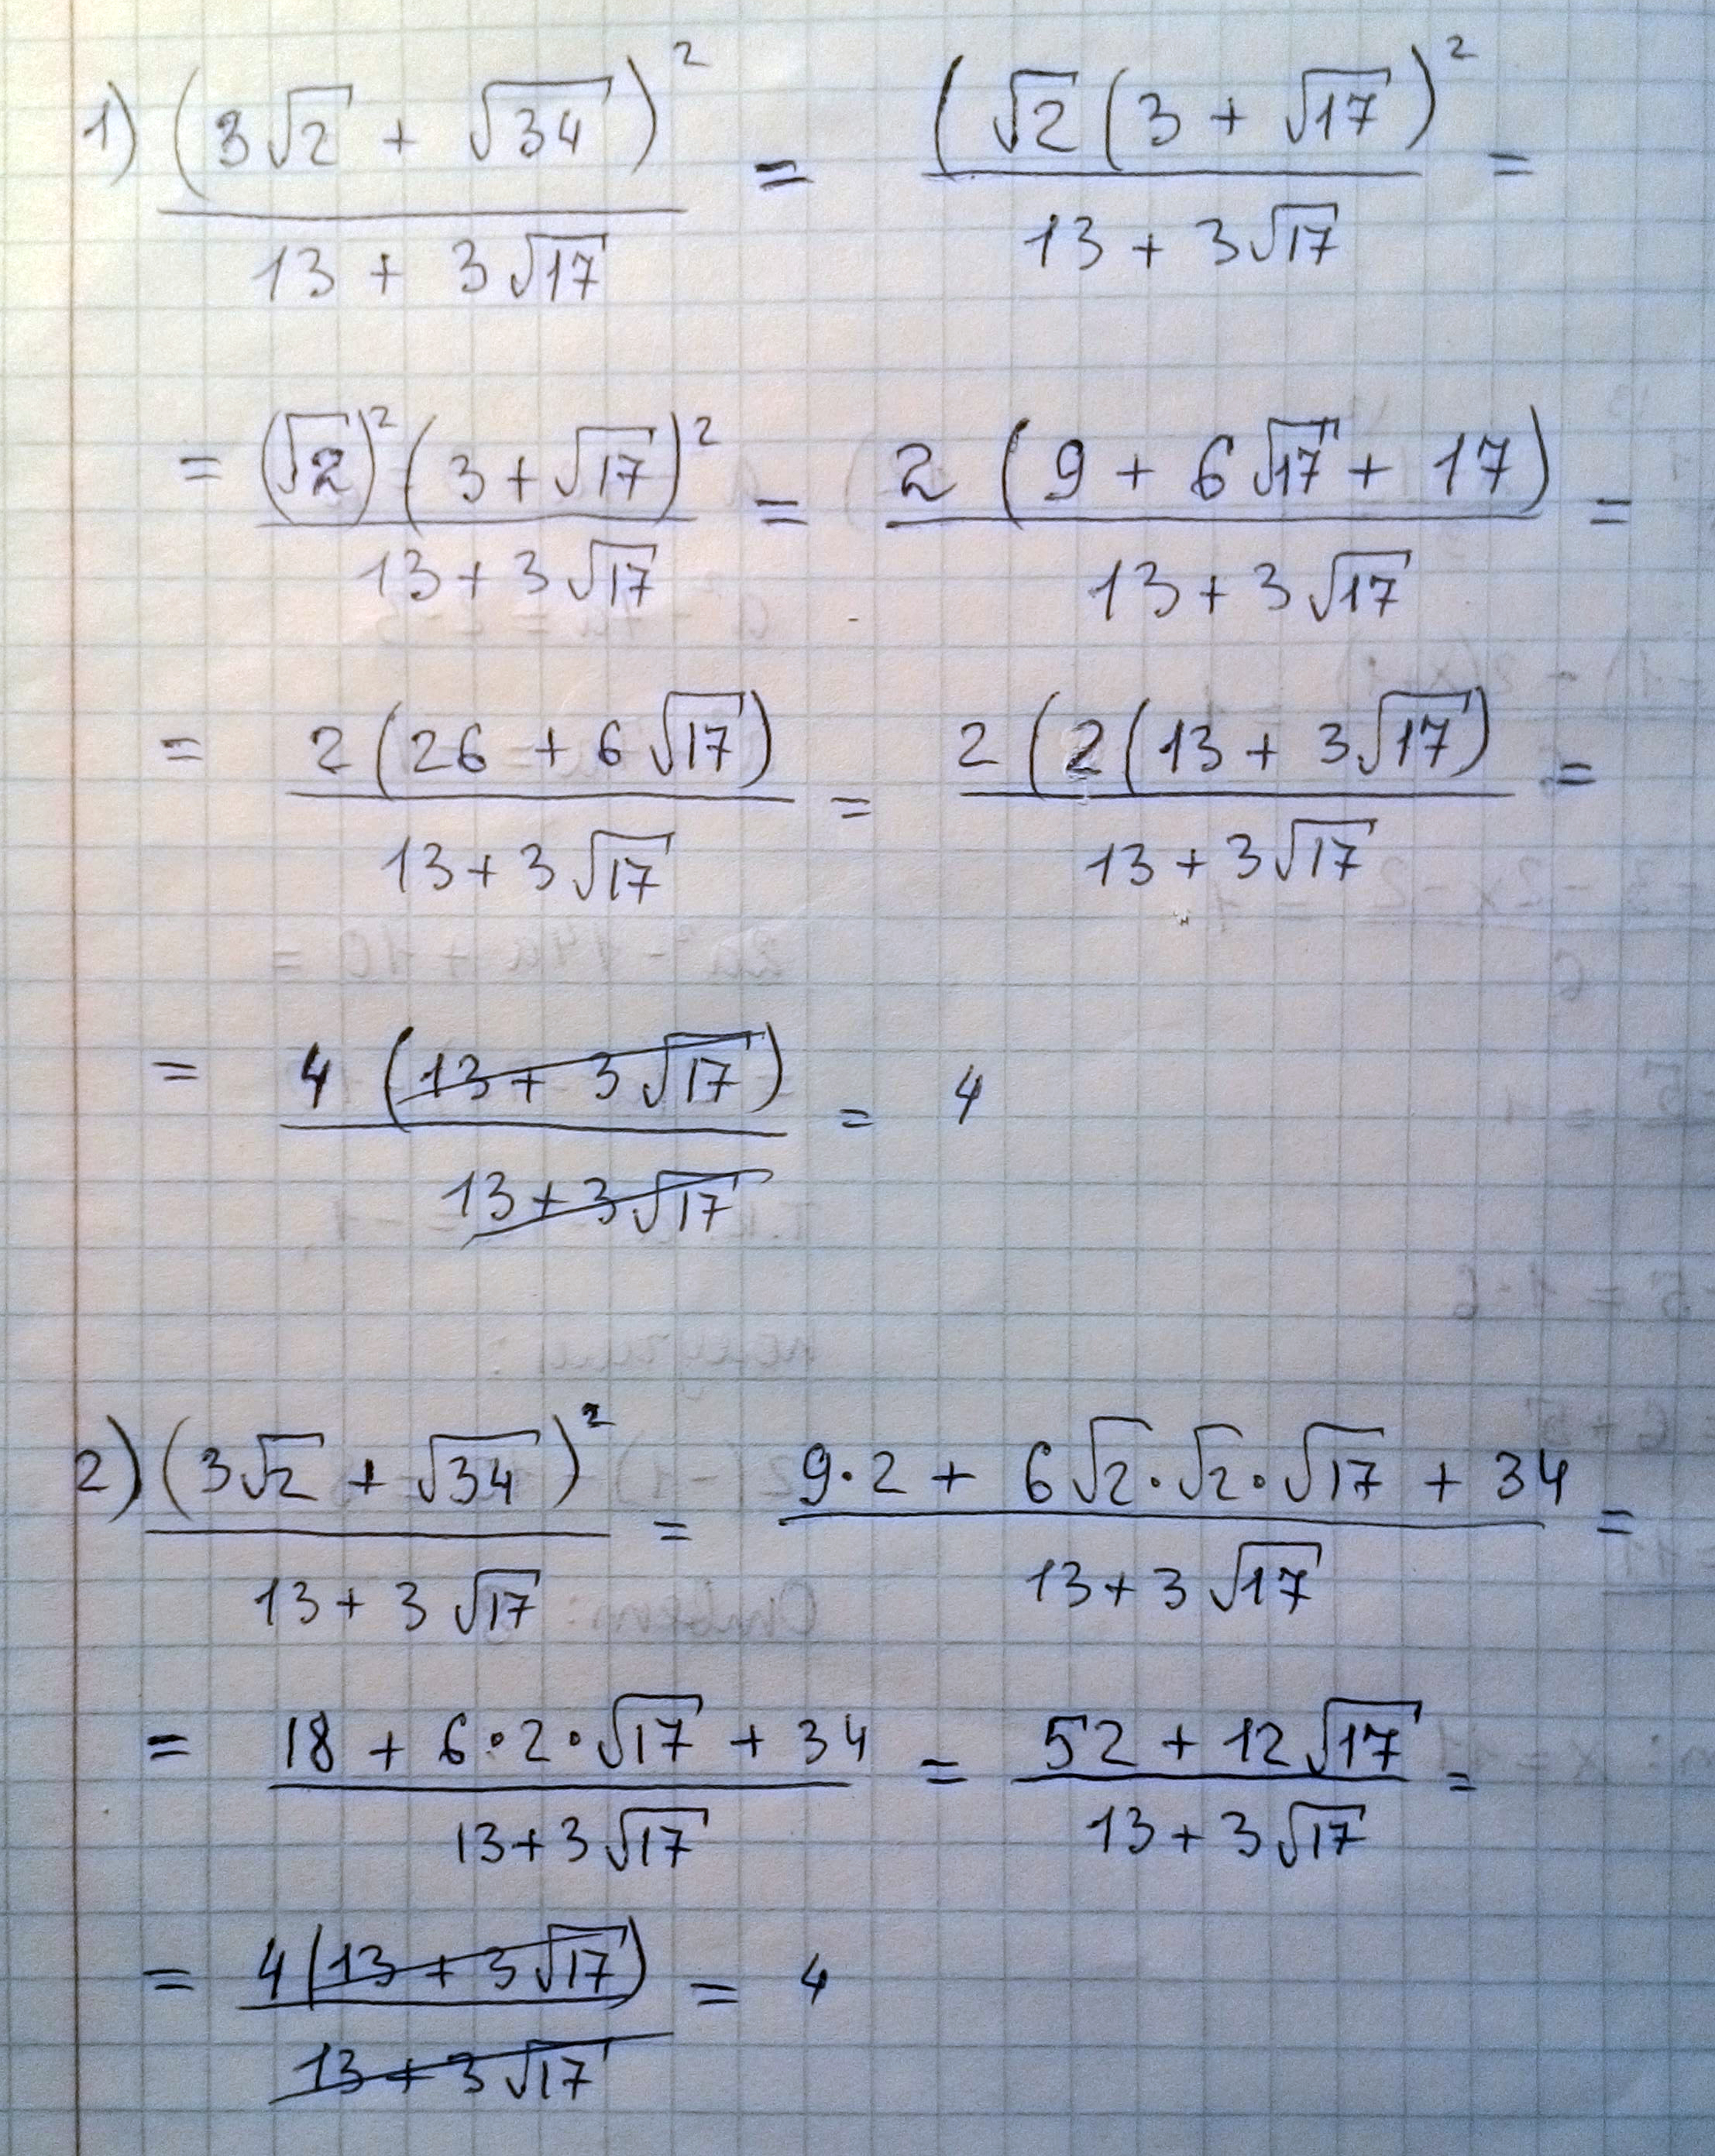 1) (3√2 + √34)² / (13 + 3√17) = (√2(3 + √17)² / (13 + 3√17) =
= (√2)²(3 + √17)² / (13 + 3√17) = 2(9 + 6√17 + 17) / (13 + 3√17) =
= 2(26 + 6√17) / (13 + 3√17) = 2(2(13 + 3√17) / (13 + 3√17) =
= 4(13 + 3√17) / (13 + 3√17) = 4
2) (3√2 + √34)² / (13 + 3√17) = (9·2 + 6√2·√2·√17 + 34) / (13 + 3√17) =
= (18 + 6·2·√17 + 34) / (13 + 3√17) = (52 + 12√17) / (13 + 3√17) =
= 4(13 + 3√17) / (13 + 3√17) = 4